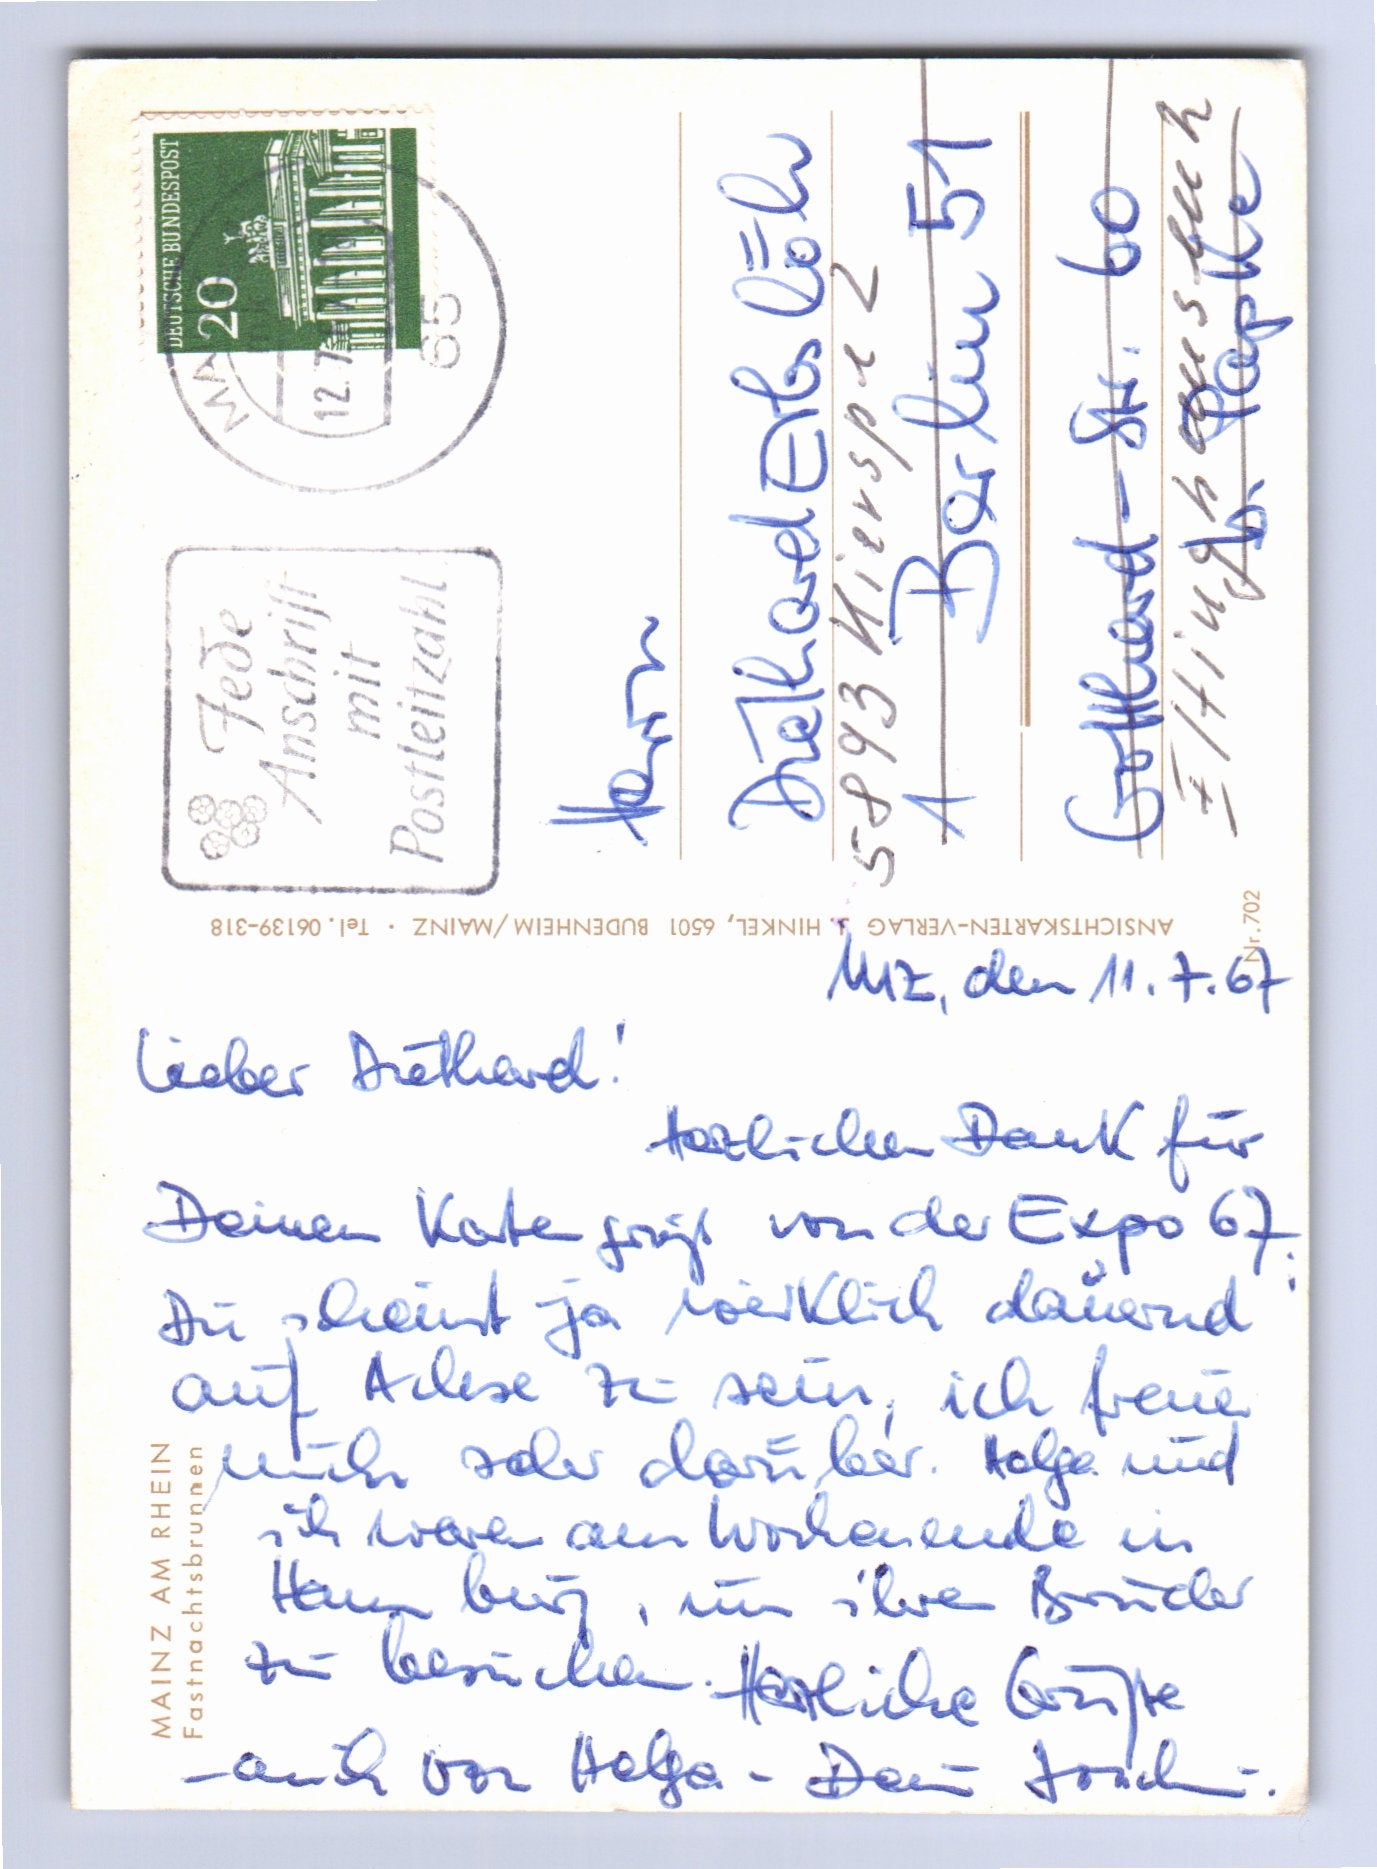 DEUTSCHE BUNDESPOST
20
MA
12.7
65
Jede
Anschrift
mit
Postleitzahl
Herrn
Diethard Erbslöh
5893 Kierspe 2
1 Berlin 51
Gotthard-Str. 60
Hinghausbuch
b. Papke
ANSICHTSKARTEN-VERLAG J. HINKEL, 6501 BUDENHEIM/MAINZ · Tel. 06139-318
Nr. 702
MZ, den 11.7.67
Lieber Diethard!
Herzlichen Dank für
Deinen Kartengruß von der Expo 67.
Du scheinst ja wirklich dauernd
auf Achse zu sein, ich freue
mich sehr darüber. Helga und
ich waren am Wochenende in
Hamburg, um ihren Bruder
zu besuchen. Herzliche Grüße
– auch von Helga – Dein Joachim.
MAINZ AM RHEIN
Fastnachtsbrunnen